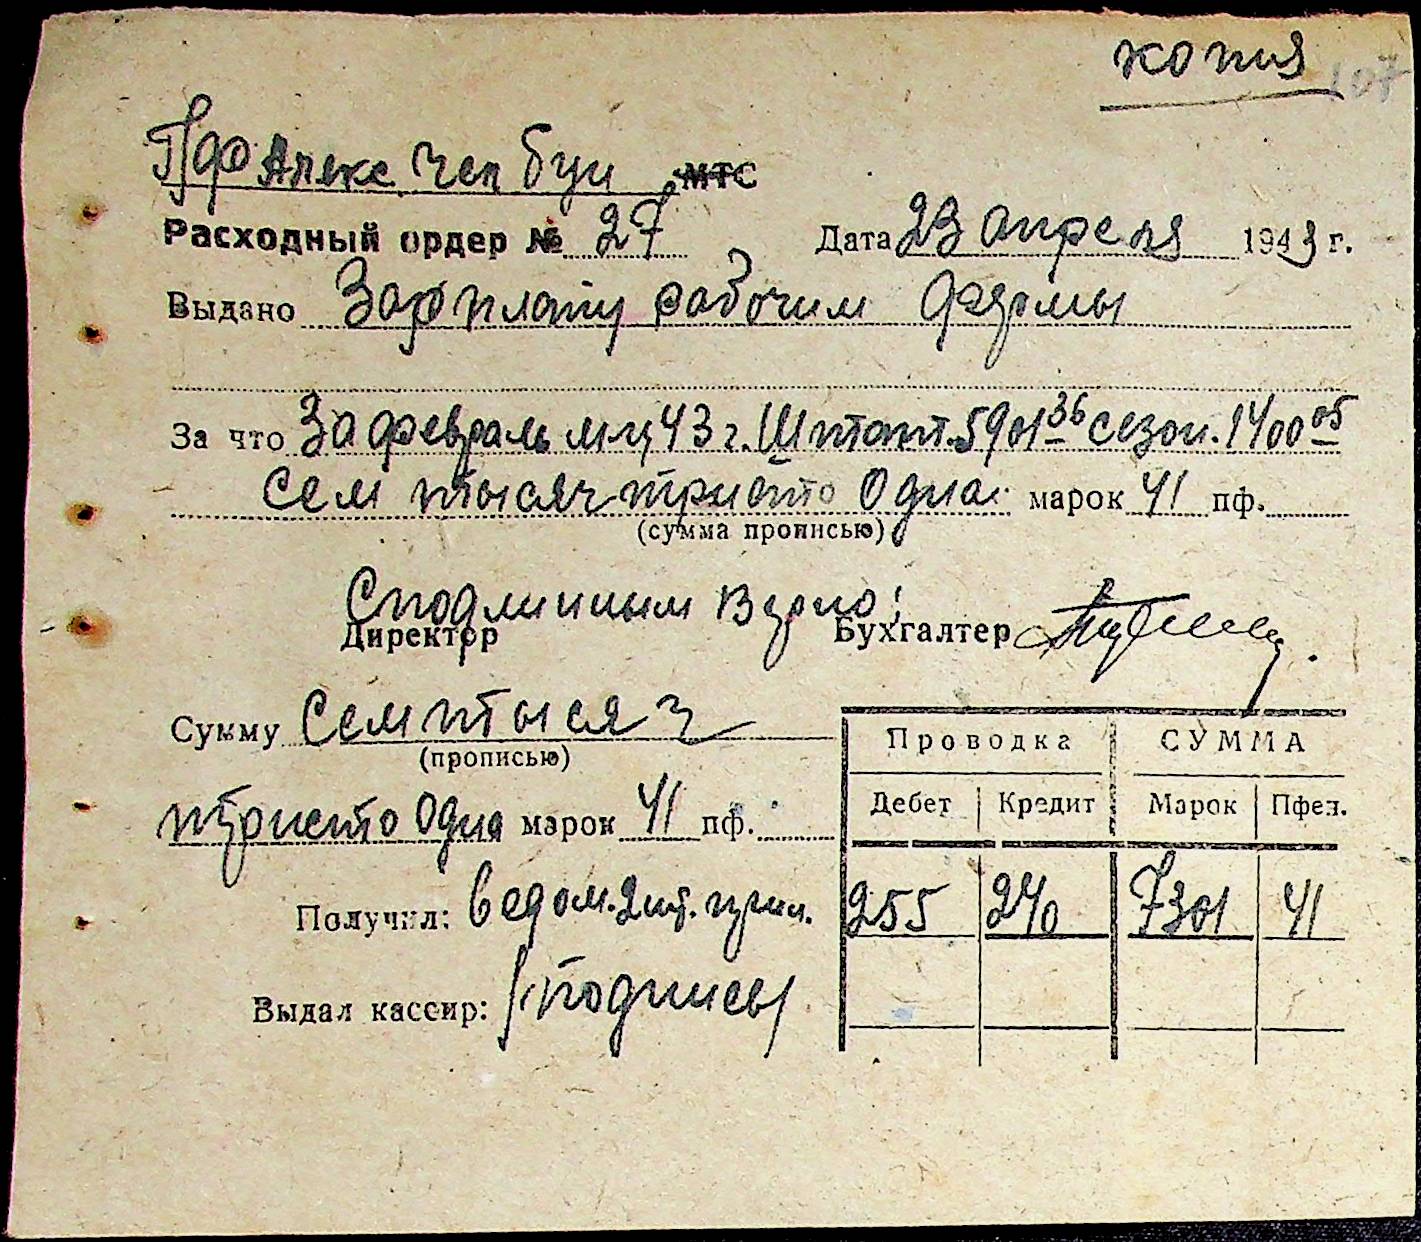 копия
107
ПФ Алекс Чеп буи МТС
Расходный ордер № 27 Дата 23 апреля 1943 г.
Выдано Зарплату рабочим фермы
За что За февраль м-ц 43 г. Штатт. 5901 36 сезон. 1400 05
Сем тысяч тристо Одна марок 41 пф.
(сумма прописью)
С подлинным верно:
Директор Бухгалтер
Сумму Сем тысяч
(прописью)
тристо Одна марок 41 пф.
Проводка СУММА
Дебет Кредит Марок Пфен.
255 240 7301 41
Получил: ведом. 2 шт. прил.
Выдал кассир: /подпись/